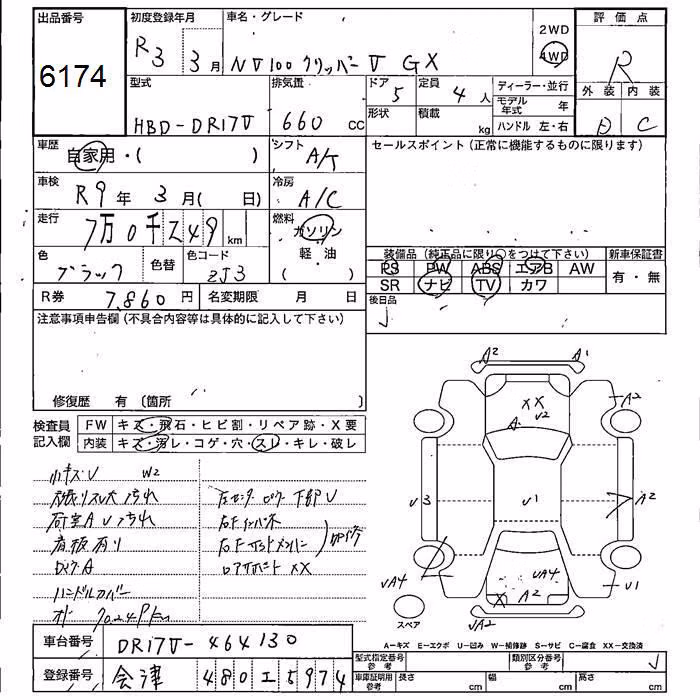 出品番号
6174
初度登録年月
R3 3月
車名・グレード
NV100 クリッパー V GX
2WD
4WD
評価点
R
外装 内装
D C
型式
HBD-DR17V
排気量
660 cc
ドア
5
定員
4人
形状
積載
kg
ディーラー・並行
モデル年式 年
ハンドル 左・右
車歴
自家用・( )
シフト
A/T
セールスポイント(正常に機能するものに限ります)
車検
R9年 3月( 日)
冷房
A/C
走行
7万0千249km
燃料
ガソリン
軽・油
( )
色
ブラック
色替
色コード
ZJ3
装備品(純正品に限り○をつけて下さい)
PS PW ABS エアB AW
SR ナビ TV カワ
新車保証書
有・無
R券
7,860円
名変期限 月 日
後日品
注意事項申告欄(不具合内容等は具体的に記入して下さい)
修復歴 有 (箇所 )
検査員記入欄
FW キズ・飛石・ヒビ割・リペア跡・X要
内装 キズ・汚レ・コゲ・穴・スレ・キレ・破レ
小キズU W2
汚れ
荷室AU汚れ
看板有り
A
ハンドルカバー
70249km
下部U
右Fインパネ
右Fサイドメンバー
XX
A2
A1
XX
U2
A
A2
U3
U1
A2
UA4
UA4
X
A2
UA2
U1
スペア
A-キズ E-エクボ U-凹み W-補修跡 S-サビ C-腐食 XX-交換済
車台番号
DR17V-464130
登録番号
会津 480 エ 5974
型式指定番号 参考
類別区分番号 参考
車庫証明用 参考
長さ cm
幅 cm
高さ cm